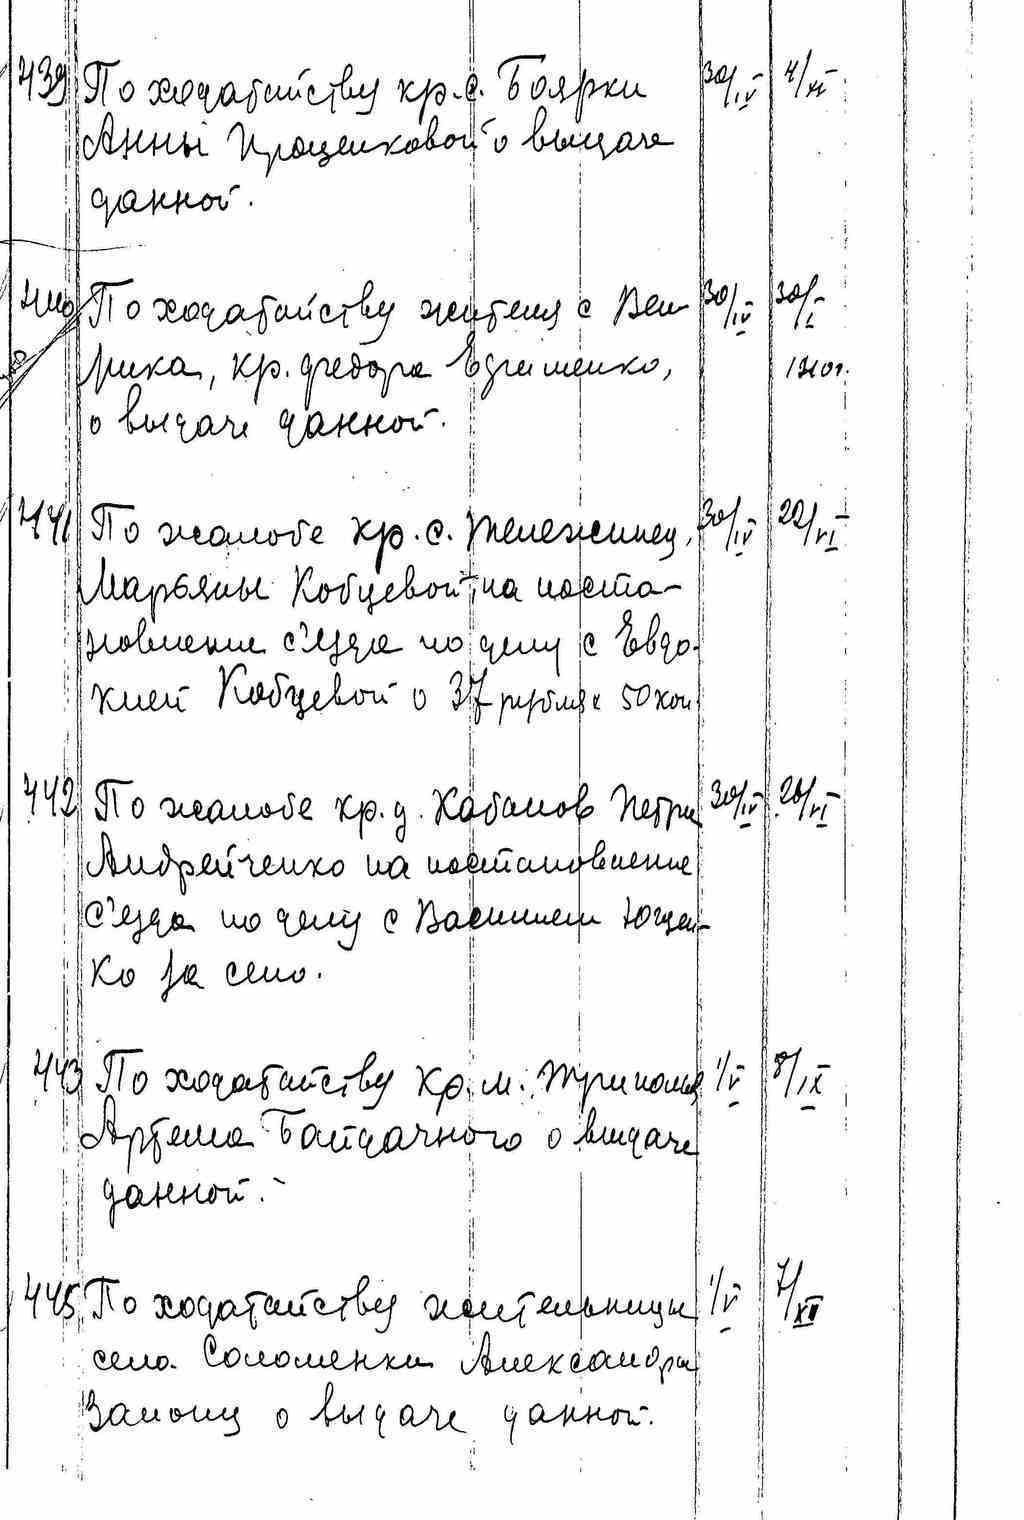 439 По ходатайству кр. с. Боярки 30/IV
Анны Проценковой о выдаче
данной.
440 По ходатайству жителя с Вен- 30/IV 30/I
рика, кр. Федора Ефименко, 1910г.
о выдаче данной.
441 По жалобе кр. с. Мележинец, 30/IV 22/VI
Марьяны Кобцевой на поста-
новление с'езда по делу с Евдо-
кией Кобцевой о 37 рублях 50 коп.
442 По жалобе кр. д. Кабанов Петра 30/IV 20/VI
Андрейченко на постановление
с'езда по делу с Василием Ющен-
ко за сено.
443 По ходатайству кр. м. Триполья 1/V 8/IX
Артема Байдачного о выдаче
данной.
445 По ходатайству жительницы 1/V 7/XII
села Соломенки Александры
о выдаче данной.